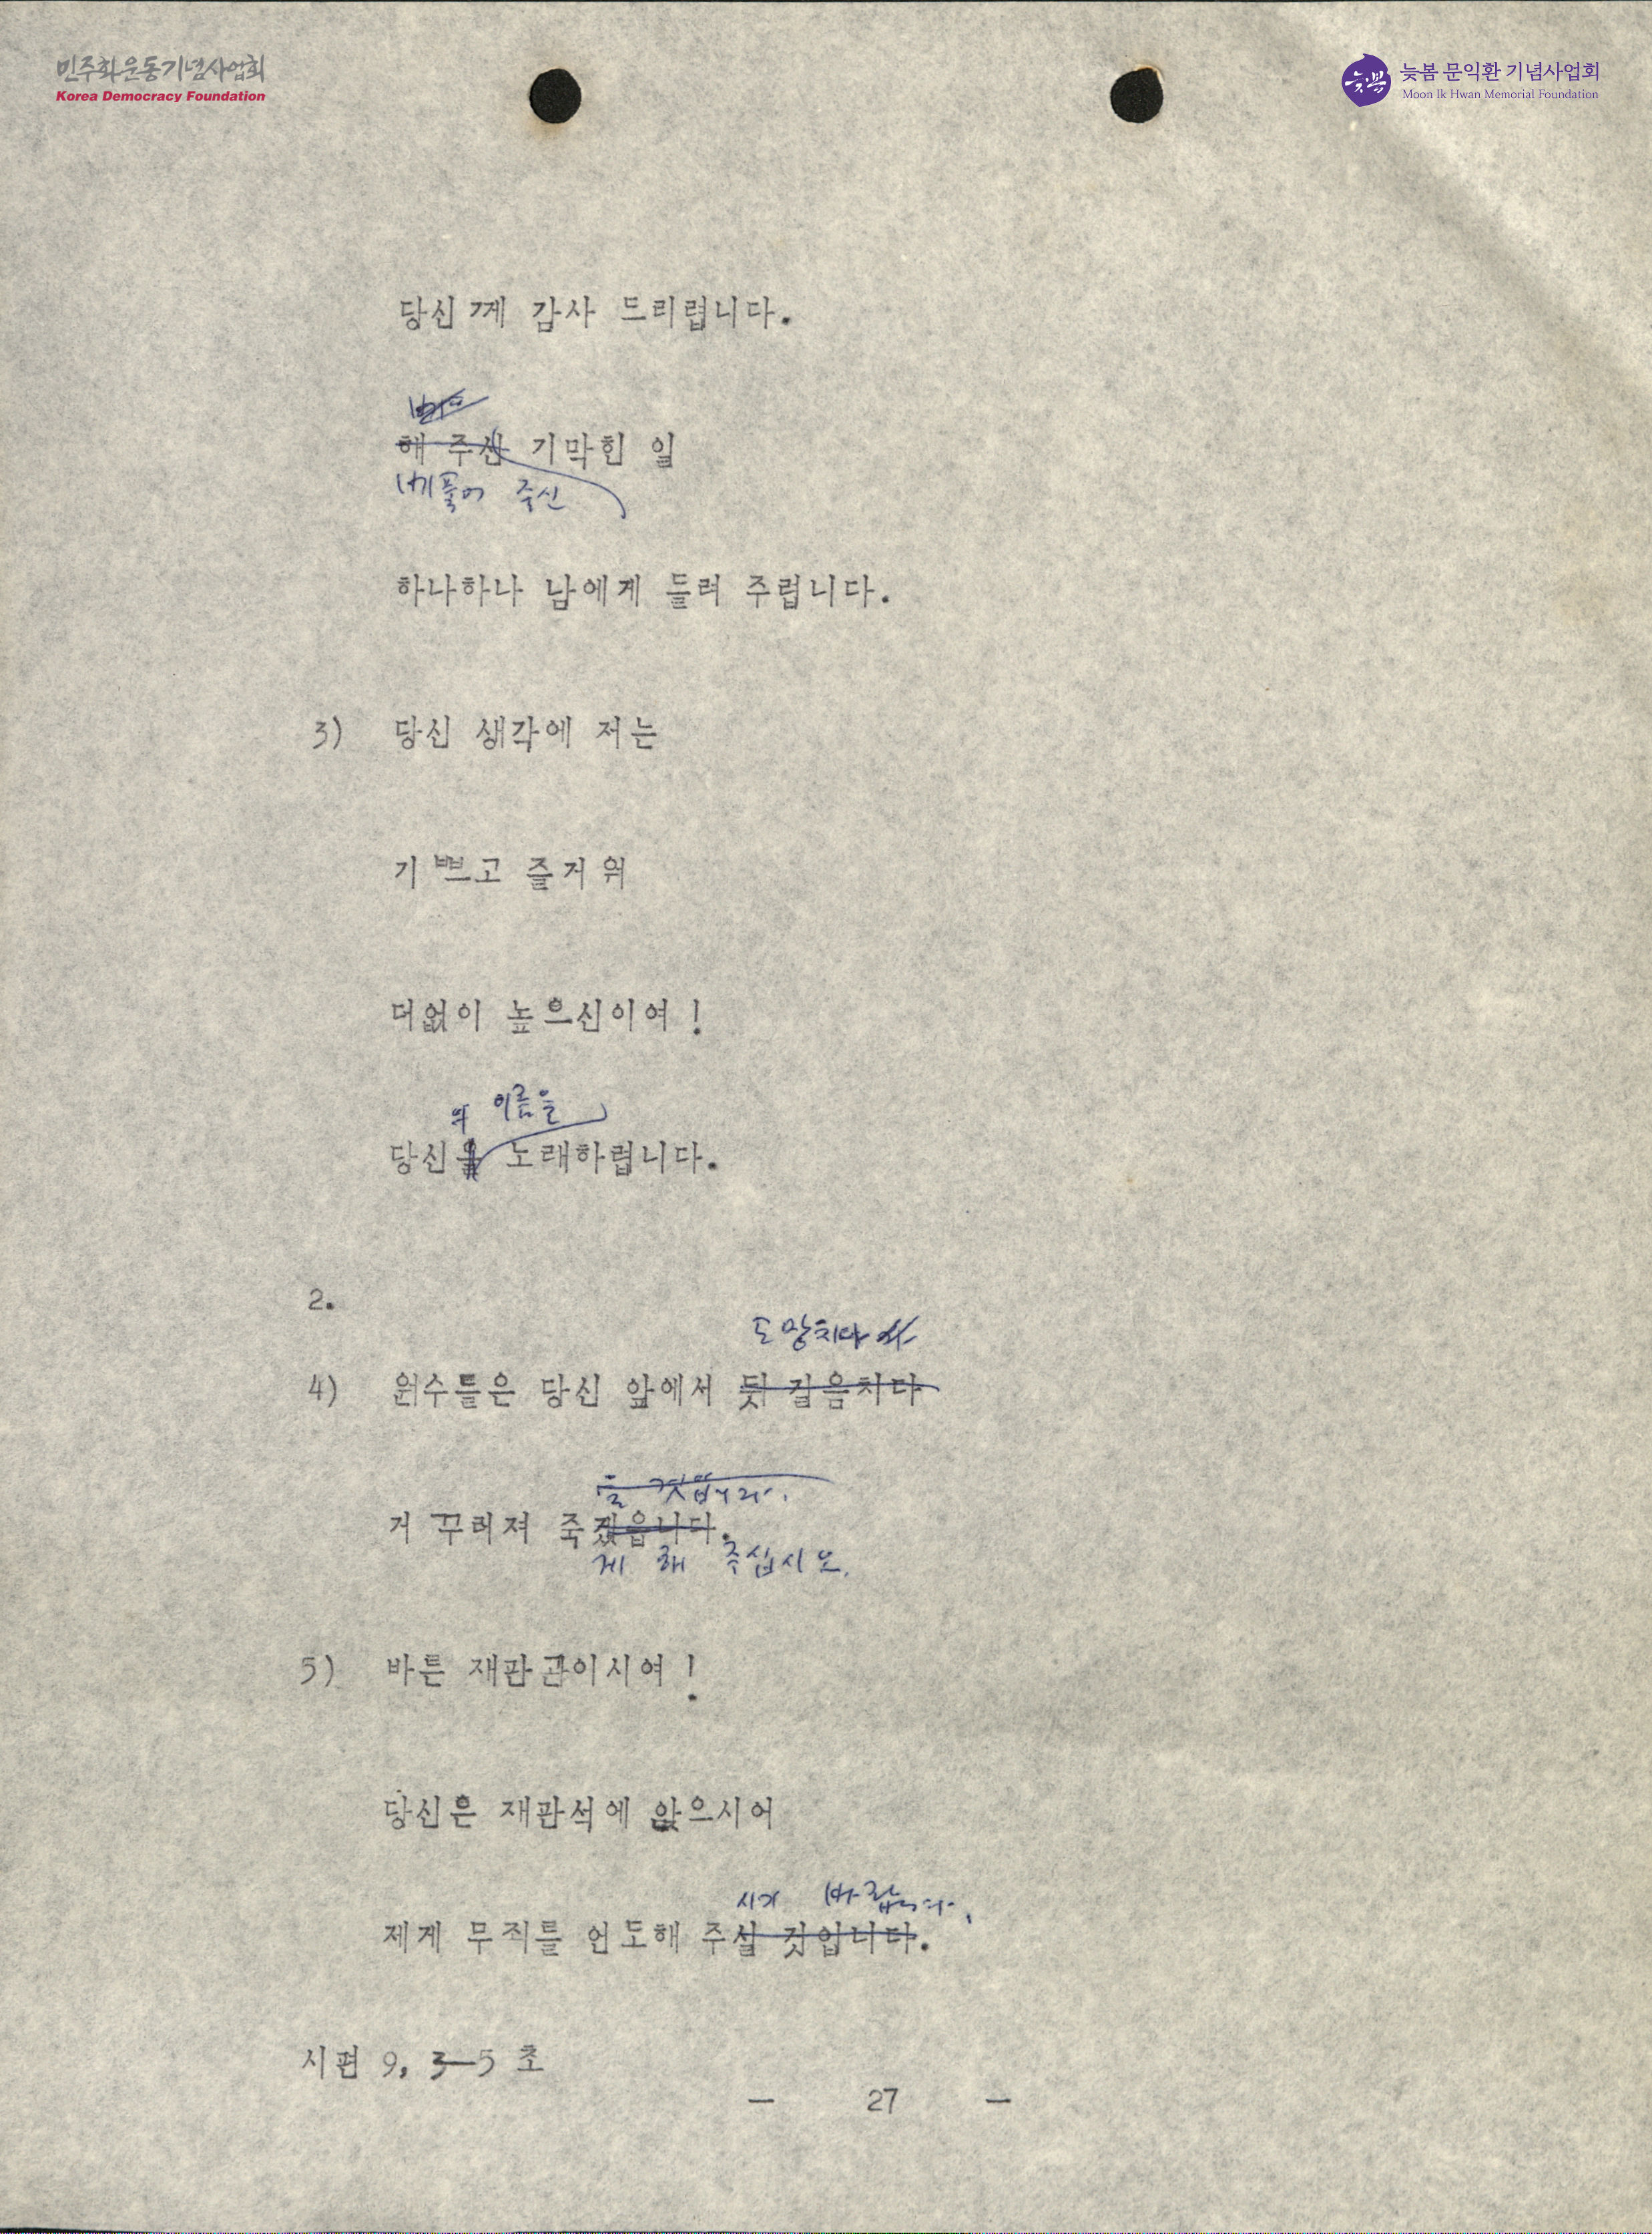 민주화운동기념사업회
Korea Democracy Foundation
늦봄
늦봄 문익환 기념사업회
Moon Ik Hwan Memorial Foundation
당신께 감사 드리렵니다.
해 주신 기막힌 일
베풀어 주신
하나하나 남에게 들려 주렵니다.
3) 당신 생각에 저는
기쁘고 즐거워
더없이 높으신이여!
의 이름을
당신을 노래하렵니다.
2.
도망치다가
4) 원수들은 당신 앞에서 뒷걸음치다
을 것입니다.
거꾸러져 죽겠읍니다.
게 해 주십시오.
5) 바른 재판관이시여!
당신은 재판석에 앉으시어
시기 바랍니다.
제게 무죄를 언도해 주실 것입니다.
시편 9, 3—5 초
— 27 —